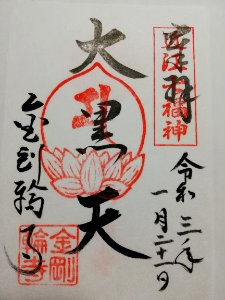 奉拝
近江七福神
令和三年
一月二十一日
大黒天
金剛輪寺
金剛
輪寺